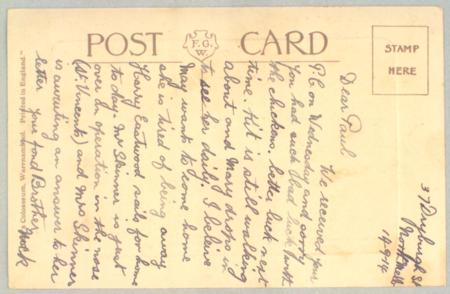 POST CARD
F.G.
W.
STAMP
HERE
"Colosseum, Warrnambool. Printed in England."
14-9-14
Dear Paul
We received your
P.C on Wednesday and sorry
you had such bad luck with
the chickens. better luck next
time. Kit is still walking
about and Mary drops in
to see her daily. I believe
May wants to come home
she is tired of being away
Harry Eastwood sails for home
to day. Mr Skinner is just
over an operation in the nose
(St Vincents) and Mrs Skinner
is awaiting an answer to her
letter your fond Brother